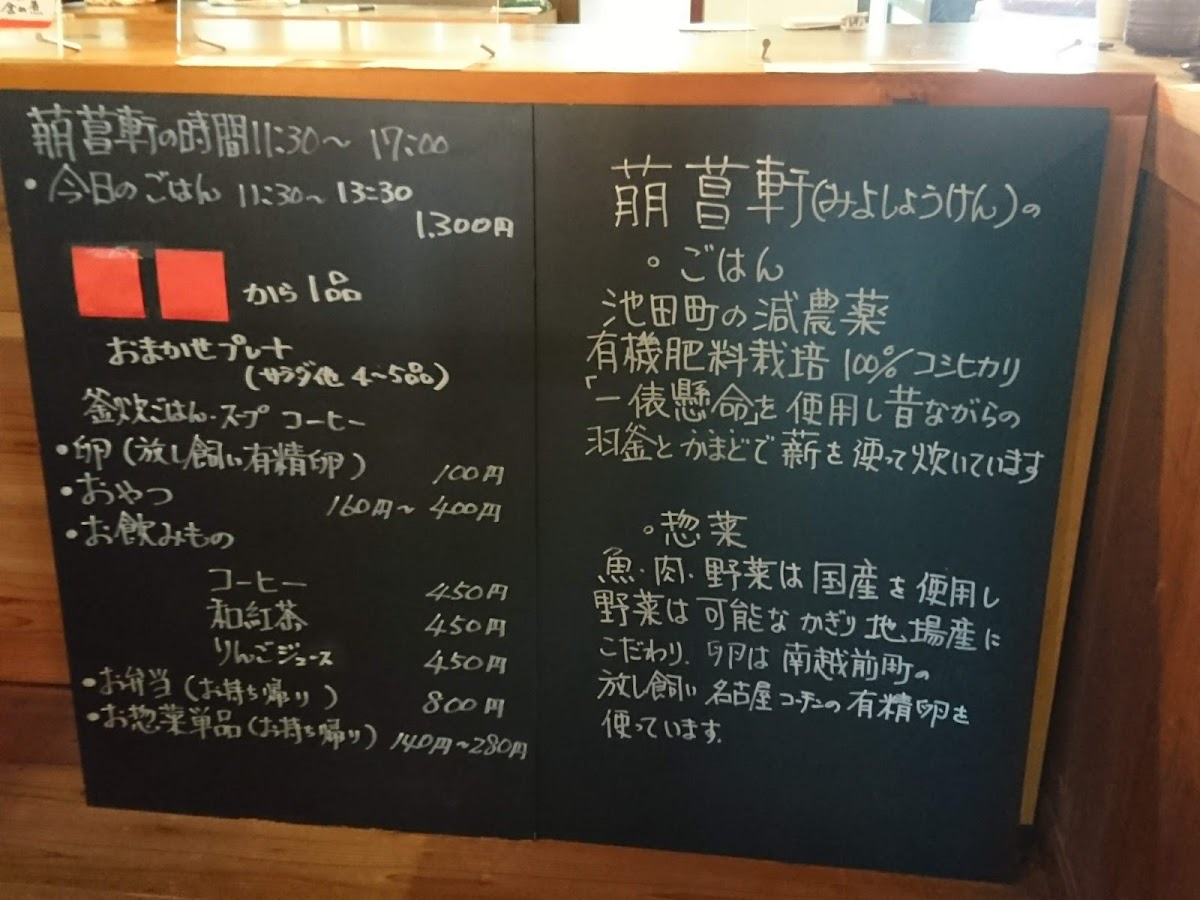 萠菖軒の時間11:30〜 17:00
・今日のごはん 11:30〜 13:30
1.300円
から 1品
おまかせプレート
(サラダ他 4〜5品)
釜炊ごはん・スープ コーヒー
・卵(放し飼い有精卵) 100円
・おやつ 160円〜 400円
・お飲みもの
コーヒー 450円
和紅茶 450円
りんごジュース 450円
・お弁当(お持ち帰り) 800円
・お惣菜単品(お持ち帰り) 140円〜280円
萠菖軒(みよしょうけん)の
。ごはん
池田町の減農薬
有機肥料栽培 100%コシヒカリ
「一俵懸命」を使用し昔ながらの
羽釜とかまどで薪を使って炊いています
。惣菜
魚・肉・野菜は国産を使用し
野菜は可能なかぎり地場産に
こだわり、卵は南越前町の
放し飼い名古屋コーチンの有精卵を
使っています。